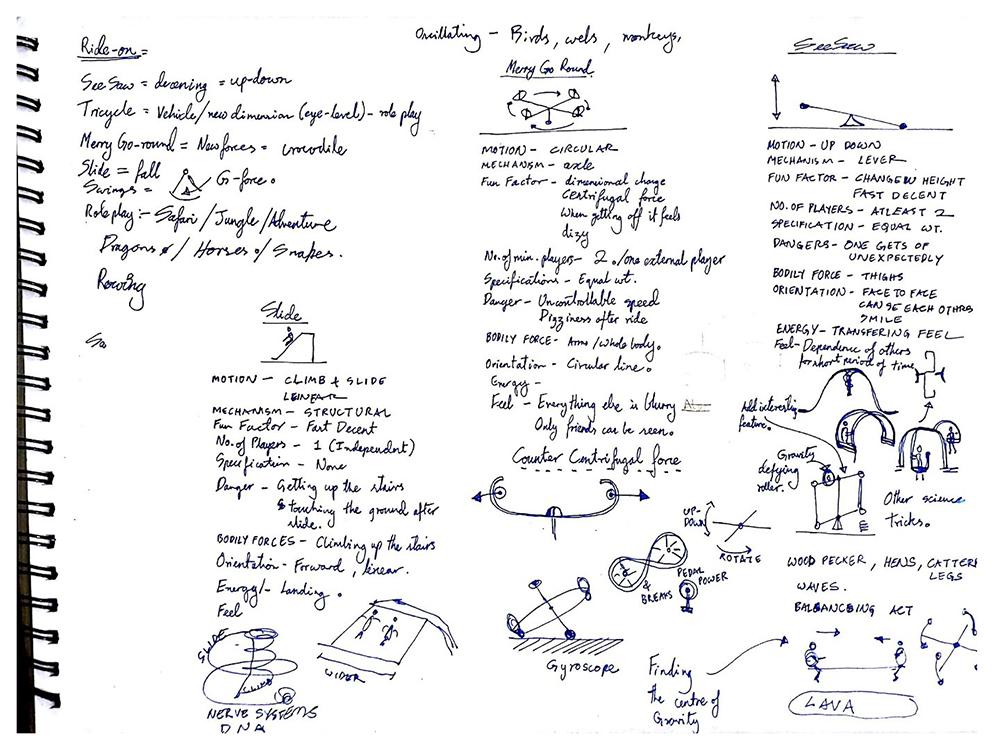 Ride-on =
SeeSaw = decening = up-down
Tricycle = Vehicle/new dimension (eye-level) - role play
Merry Go-round = New forces = crocodile
Slide = fall
Swings = G-force.
Role play:- Safari / Jungle / Adventure
Dragons / Horses / Snakes.
Rowing
Sa
Slide
MOTION - CLIMB + SLIDE
LINEAR
MECHANISM - STRUCTURAL
Fun Factor - Fast Decent
No. of Players - 1 (Independent)
Specification - None
Danger - Getting up the stairs
& touching the ground after
slide.
BODILY FORCES - Climbing up the stairs
Orientation - Forward, linear.
Energy/- Landing.
Feel
SLIDE
CLIMB
NERVE SYSTEMS
DNA
WIDER
Oscillating - Birds, wels, monkeys,
Merry Go Round
MOTION - CIRCULAR
MECHANISM - axle
Fun Factor - dimensional change
Centrifugal force
When getting off it feels
dizy
No. of min. players - 2 ./one external player
Specifications - Equal wt.
Danger - Uncontrollable speed
Dizziness after ride
BODILY FORCE - Arms/Whole body.
Orientation - Circular line.
Energy -
Feel - Everything else is blurry
Only friends can be seen.
Counter Centrifugal force
UP-
DOWN
ROTATE
PEDAL
POWER
& BREAKS
Gyroscope
Finding
the centre of
Gravity
SeeSaw
MOTION - UP DOWN
MECHANISM - LEVER
FUN FACTOR - CHANGE IN HEIGHT
FAST DECENT
NO. OF PLAYERS - ATLEAST 2
SPECIFICATION - EQUAL WT.
DANGERS - ONE GETS OF
UNEXPECTEDLY
BODILY FORCE - THIGHS
ORIENTATION - FACE TO FACE
CAN SEE EACH OTHRS
SMILE
ENERGY - TRANSFERING FEEL
Feel - Dependence of others
for short period of time
Add interesting
feature.
Gravity
defying
roller.
Other science
tricks.
WOOD PECKER, HENS, CATTERP
LEGS
WAVES.
BALANCEING ACT
LAVA